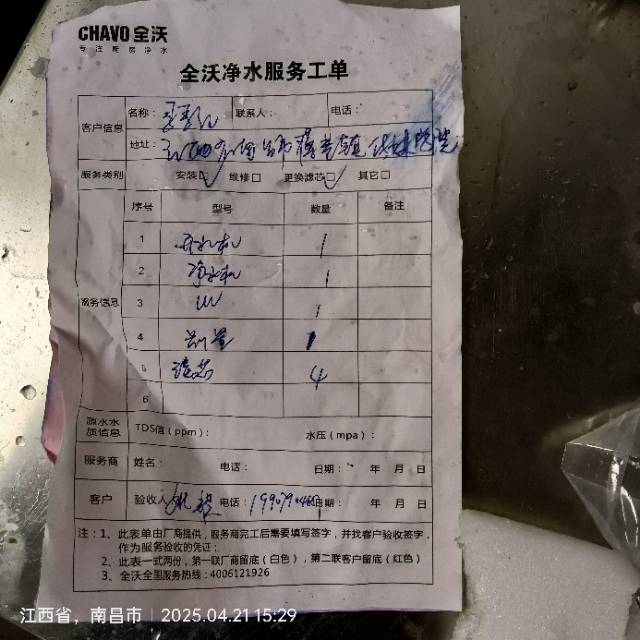 CHAVO 全沃
专注厨房净水
全沃净水服务工单
客户信息 名称： 联系人： 电话：
地址：
服务类别 安装☑ 维修□ 更换滤芯☑ 其它□
服务信息 序号 型号 数量 备注
1 开水机 1
2 净水机 1
3 UV 1
4 1
5 滤芯 4
6
源水水质信息 TDS值（ppm）： 水压（mpa）：
服务商 姓名： 电话： 日期： 年 月 日
客户 验收人 电话： 日期： 年 月 日
注：1、此表单由厂商提供，服务商完工后需要填写签字，并找客户验收签字，
作为服务验收的凭证；
2、此表一式两份，第一联厂商留底（白色），第二联客户留底（红色）
3、全沃全国服务热线：4006121926
江西省，南昌市 2025.04.21 15:29